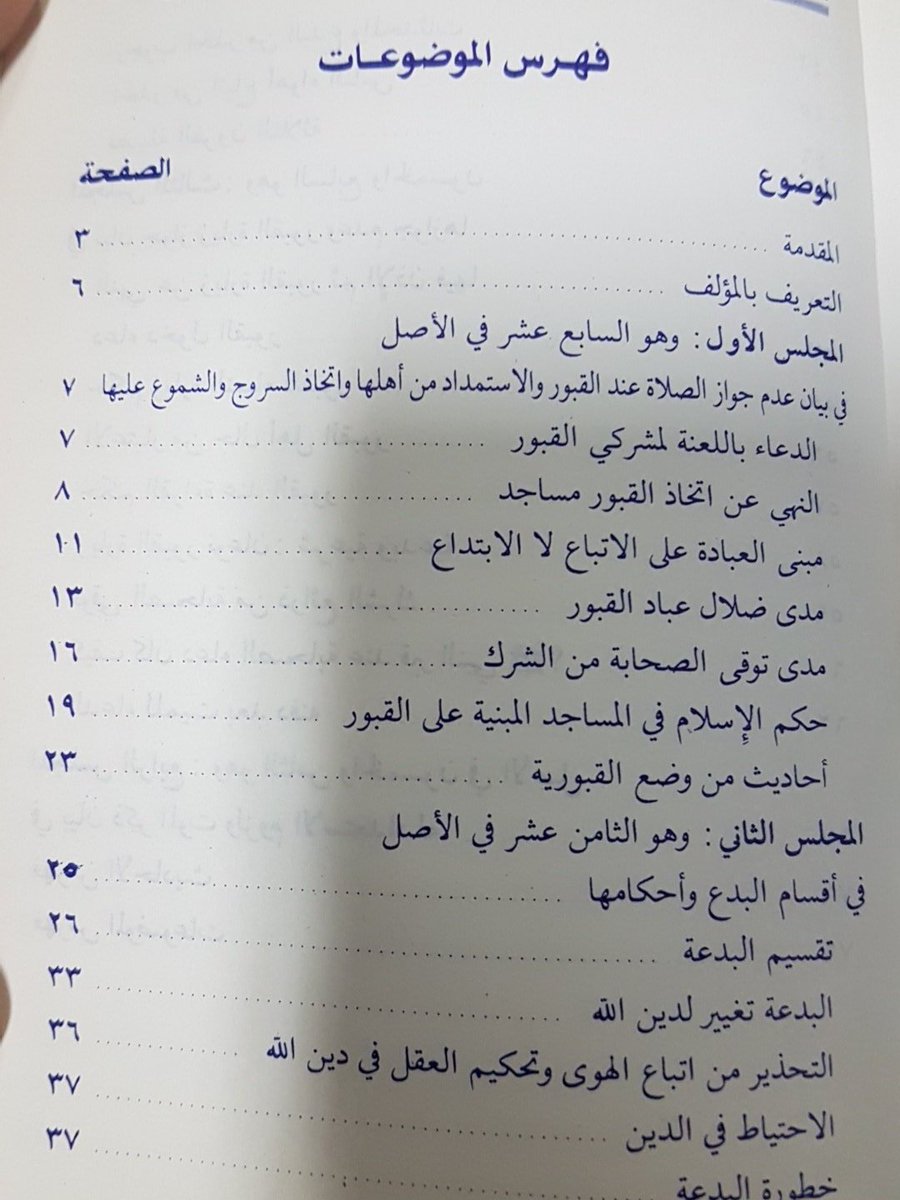 فهرس الموضوعات
الموضوع الصفحة
المقدمة ٣
التعريف بالمؤلف ٦
المجلس الأول: وهو السابع عشر في الأصل
في بيان عدم جواز الصلاة عند القبور والاستمداد من أهلها واتخاذ السروج والشموع عليها ٧
الدعاء باللعنة لمشركي القبور ٧
النهي عن اتخاذ القبور مساجد ٨
مبنى العبادة على الاتباع لا الابتداع ١٠١
مدى ضلال عباد القبور ١٣
مدى توقى الصحابة من الشرك ١٦
حكم الإسلام في المساجد المبنية على القبور ١٩
أحاديث من وضع القبورية ٢٣
المجلس الثاني: وهو الثامن عشر في الأصل
في أقسام البدع وأحكامها ٢٥
تقسيم البدعة ٢٦
البدعة تغيير لدين الله ٣٣
التحذير من اتباع الهوى وتحكيم العقل في دين الله ٣٦
الاحتياط في الدين ٣٧
خطورة البدعة ٣٧